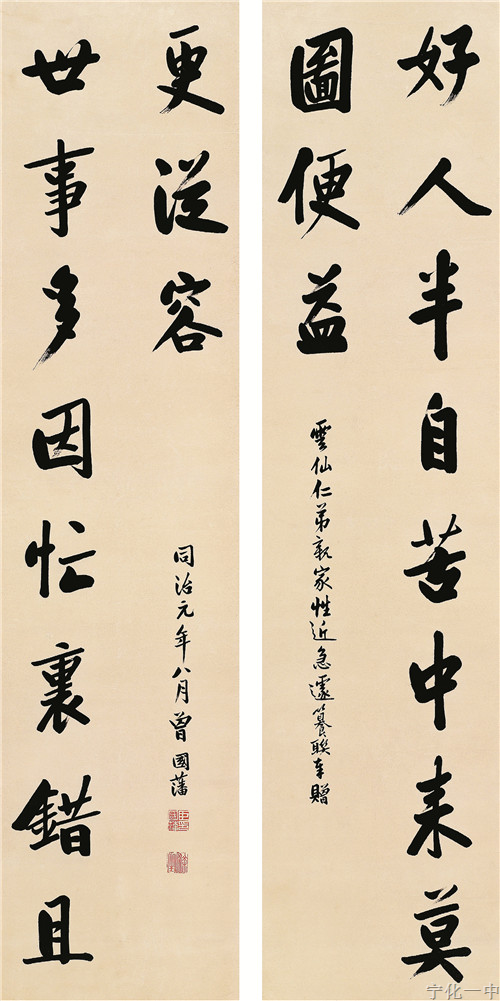 好人半自苦中来莫
圖便益
雲仙仁弟親家性近急遽纂聯奉贈
世事多因忙裏錯且
更從容
同治元年八月曾國藩
宁化一中